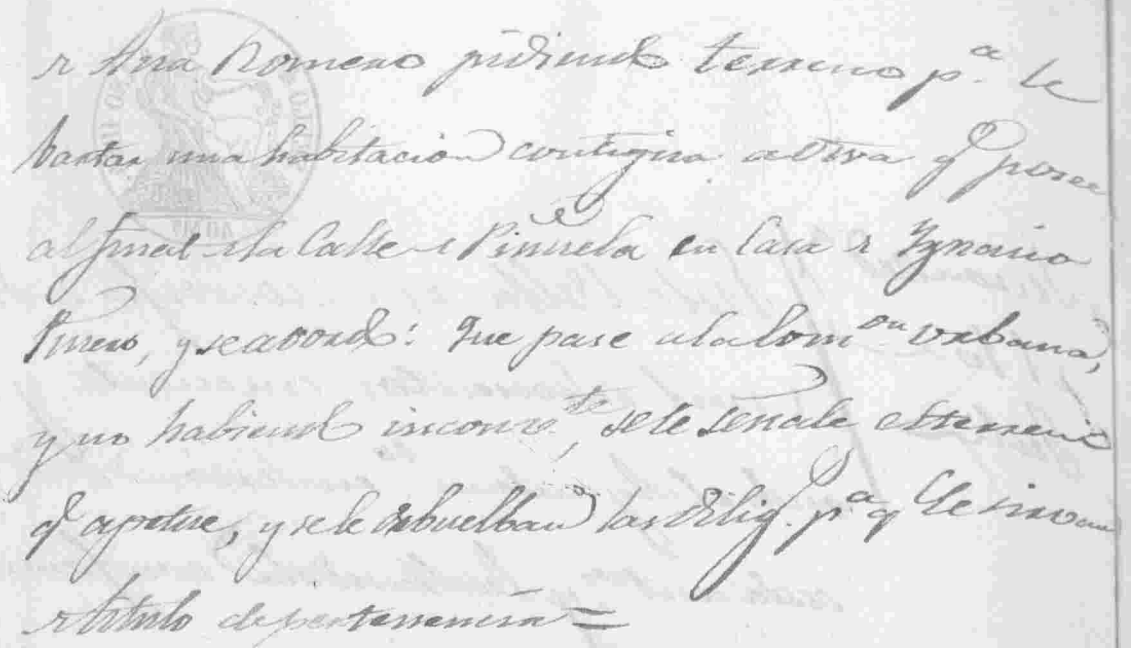 de Ana Romero pidiendo terreno p.ª le
bantar una habitacion contigua a otra q.e posee
al final de la Calle de Piñuela en Casa de Ygnacio
Piñero, y se acordó: Que pase a la Com.on urbana,
y no habiendo inconv.te, se le señale el terreno
q.e apetece, y se le debuelban las dilig.s p.ª q.e le sirvan
de titulo de pertenencia =